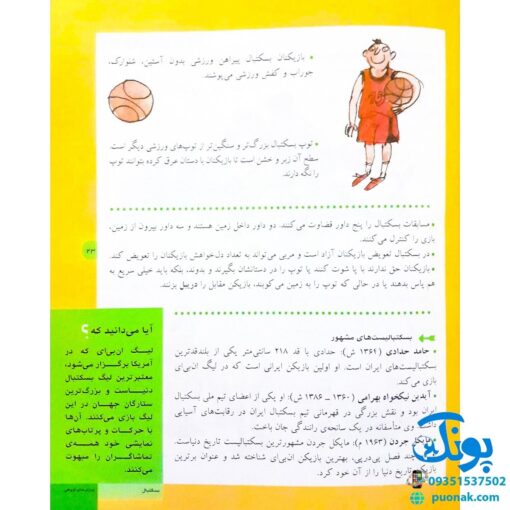 • بازیکنان بسکتبال پیراهن ورزشی بدون آستین، شلوارک،
جوراب و کفش ورزشی می‌پوشند.
• توپ بسکتبال بزرگ‌تر و سنگین‌تر از توپ‌های ورزشی دیگر است.
سطح آن زبر و خشن است تا بازیکنان با دستان عرق کرده بتوانند توپ
را نگه دارند.
• مسابقات بسکتبال را پنج داور قضاوت می‌کنند. دو داور داخل زمین هستند و سه داور بیرون از زمین،
بازی را کنترل می‌کنند.
• در بسکتبال تعویض بازیکنان آزاد است و مربی می‌تواند به تعداد دل‌خواهش بازیکنان را تعویض کند.
• بازیکنان حق ندارند با پا شوت کنند یا توپ را در دستانشان بگیرند و بدوند، بلکه باید خیلی سریع به
هم پاس بدهند یا در حالی که توپ را به زمین می‌کوبند، بازیکن مقابل را دریبل بزنند.
۲۳
بسکتبالیست‌های مشهور
• حامد حدادی (۱۳۶۴ ش): حدادی با قد ۲۱۸ سانتی‌متر یکی از بلندقدترین
بسکتبالیست‌های ایران است. او اولین بازیکن ایرانی است که در لیگ ان‌بی‌ای
بازی می‌کند.
• آیدین نیکخواه بهرامی (۱۳۶۰ – ۱۳۸۶ ش): او یکی از اعضای تیم ملی بسکتبال
ایران بود و نقش بزرگی در قهرمانی تیم بسکتبال ایران در رقابت‌های آسیایی
داشت. وی متأسفانه در یک سانحه‌ی رانندگی جان باخت.
مایکل جردن (۱۹۶۳ م): مایکل جردن مشهورترین بسکتبالیست تاریخ دنیاست.
چند فصل پی‌درپی، بهترین بازیکن ان‌بی‌ای شناخته شد و عنوان برترین
بازیکن تاریخ دنیا را از آن خود کرد.
آیا می‌دانید که ؟
لیگ ان‌بی‌ای که در
آمریکا برگزار می‌شود،
معتبرترین لیگ بسکتبال
دنیاست و بزرگ‌ترین
ستارگان جهان در این
لیگ بازی می‌کنند. آن‌ها
با حرکات و پرتاب‌های
نمایشی خود همه‌ی
تماشاگران را مبهوت
می‌کنند.
بسکتبال
پونک
09351537502
puonak.com